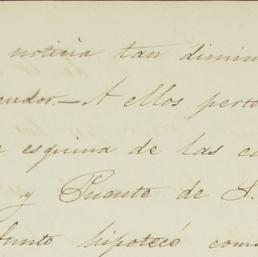 noticia tan dimin
eudor.- A ellos perte
e esquina de las ca
y Puente de S.
funto hipotecó com